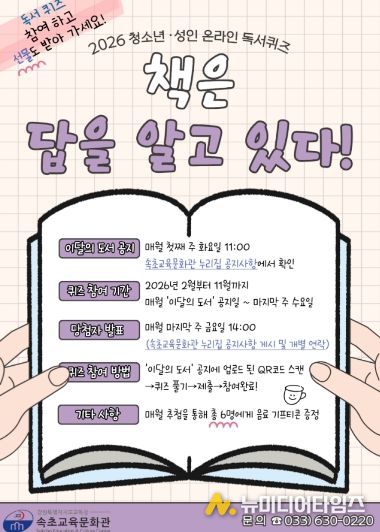 독서 퀴즈
참여 하고
선물도 받아 가세요!
2026 청소년·성인 온라인 독서퀴즈
책은
답을 알고 있다!
이달의 도서 공지
매월 첫째 주 화요일 11:00
속초교육문화관 누리집 공지사항에서 확인
퀴즈 참여 기간
2026년 2월부터 11월까지
매월 '이달의 도서' 공지일 ~ 마지막 주 수요일
당첨자 발표
매월 마지막 주 금요일 14:00
(속초교육문화관 누리집 공지사항 게시 및 개별 연락)
퀴즈 참여 방법
'이달의 도서' 공지에 업로드 된 QR코드 스캔
→퀴즈 풀기→제출→참여완료!
기타 사항
매월 추첨을 통해 총 6명에게 음료 기프티콘 증정
강원특별자치도교육청
속초교육문화관
뉴미디어타임즈
문의 ☎ 033) 630-0220